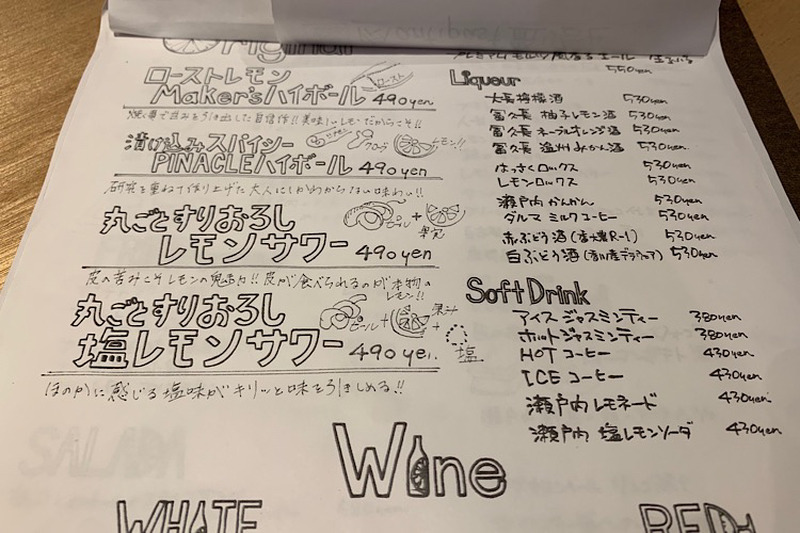 Original
ローストレモン
Maker'sハイボール 490yen
ロースト
漬け込みスパイシー
PINACLEハイボール 490yen
レモン!!
研究を重ねて作り上げた大人にしかわからない味わい!!
丸ごとすりおろし
レモンサワー 490yen
ピール + 果実
皮の苦みこそレモンの魅力!!皮が食べられるのが本物のレモン!!
丸ごとすりおろし
塩レモンサワー 490yen
ピール + 果汁 + 塩
ほのかに感じる塩味がキリッと味を引きしめる!!
550yen
Liqueur
大長檸檬酒 530yen
富久長 柚子レモン酒 530yen
富久長 ネーブルオレンジ酒 530yen
富久長 温州みかん酒 530yen
はっさくロックス 530yen
レモンロックス 530yen
瀬戸内かんかん 530yen
ダルマ ミルクコーヒー 530yen
赤ぶどう酒 530yen
白ぶどう酒 530yen
Soft Drink
アイスジャスミンティー 380yen
ホットジャスミンティー 380yen
HOT コーヒー 430yen
ICE コーヒー 430yen
瀬戸内レモネード 430yen
瀬戸内 塩レモンソーダ 430yen
Wine
WHITE
RED